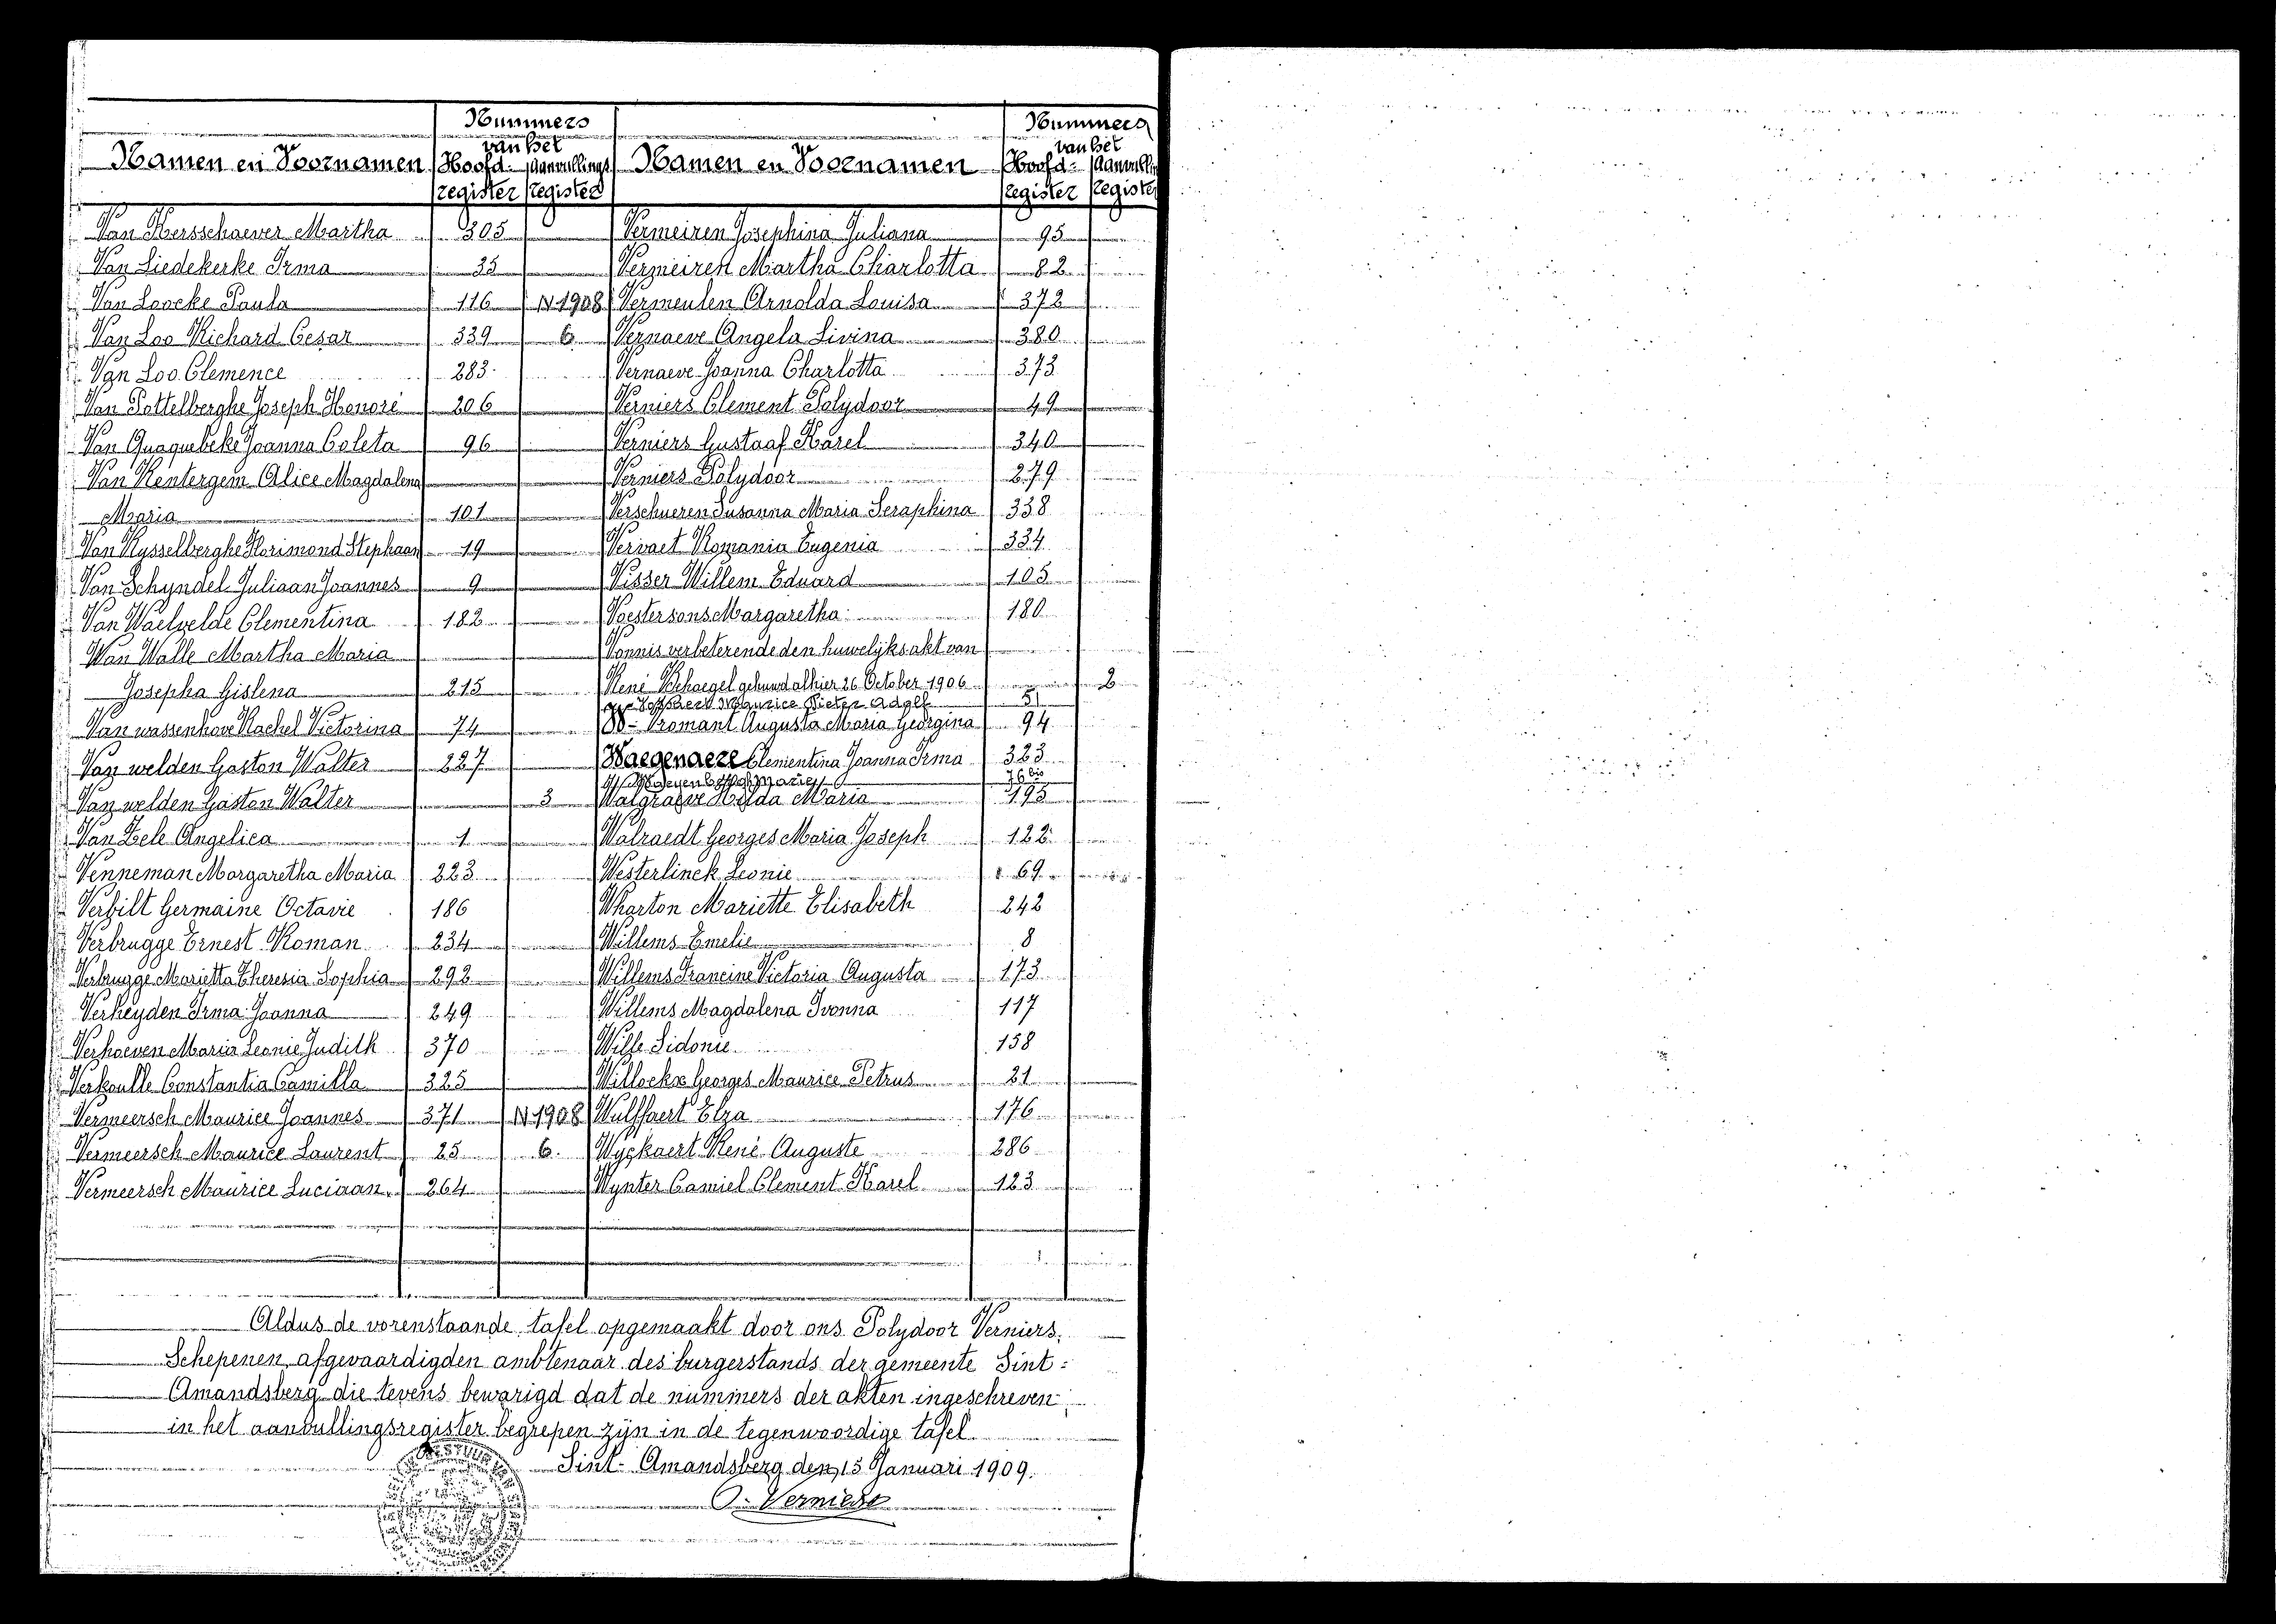 Nummers
van het
Namen en Voornamen Hoofd- Aanvullings
register register
Van Hersschaever Martha 305
Van Liedekerke Irma 35
Van Loocke Paula 116 N 1908
Van Loo Richard Cesar 339 6
Van Loo Clemence 283
Van Pottelberghe Joseph Honoré 206
Van Quaquebeke Joanna Coleta 96
Van Rentergem Alice Magdalena
Maria 101
Van Rysselberghe Florimond Stephaan 19
Van Schyndel Juliaan Joannes 9
Van Waelvelde Clementina 182
Van Walle Martha Maria
Josepha Gislena 215
Van wassenhove Rachel Victorina 74
Van welden Gaston Walter 227
Van welden Gaston Walter 3
Van Zele Angelica 1
Venneman Margaretha Maria 223
Verbilt Germaine Octavie 186
Verbrugge Ernest Roman 234
Verbrugge Marietta Theresia Sophia 292
Verheyden Irma Joanna 249
Verhoeven Maria Leonie Judith 370
Verkoulle Constantia Camilla 325
Vermeersch Maurice Joannes 371 N 1908
Vermeersch Maurice Laurent 25 6
Vermeersch Maurice Luciaan 264
Nummers
van het
Namen en Voornamen Hoofd- Aanvulli
register registe
Vermeiren Josephina Juliana 95
Vermeiren Martha Charlotta 82
Vermeulen Arnolda Louisa 372
Vernaeve Angela Livina 380
Vernaeve Joanna Charlotta 373
Verniers Clement Polydoor 49
Verniers Gustaaf Karel 340
Verniers Polydoor 279
Verschueren Susanna Maria Seraphina 338
Vervaet Romania Eugenia 334
Visser Willem Eduard 105
Voestersons Margaretha 180
Vonnis verbeterende den huwelijksakt van
René Behaegel gehuwd alhier 26 October 1906 2
Maurice Pieter Adolf 51
Vromant Augusta Maria Georgina 94
Waegenaere Clementina Joanna Irma 323
Marie 76 bis
Walgraeve Hilda Maria 195
Walraedt Georges Maria Joseph 122
Westerlinck Leonie 69
Wharton Mariette Elisabeth 242
Willems Emelie 8
Willems Francine Victoria Augusta 173
Willems Magdalena Ivonna 117
Wille Sidonie 158
Willockx Georges Maurice Petrus 21
Wulffaert Elza 176
Wyckaert René Auguste 286
Wynter Camiel Clement Karel 123
Aldus de vorenstaande tafel opgemaakt door ons Polydoor Verniers,
Schepenen, afgevaardigden ambtenaar des burgerstands der gemeente Sint-
Amandsberg die tevens bewarigd dat de nummers der akten ingeschreven
in het aanvullingsregister begrepen zijn in de tegenwoordige tafel.
Sint-Amandsberg den 15 Januari 1909.
P. Verniers